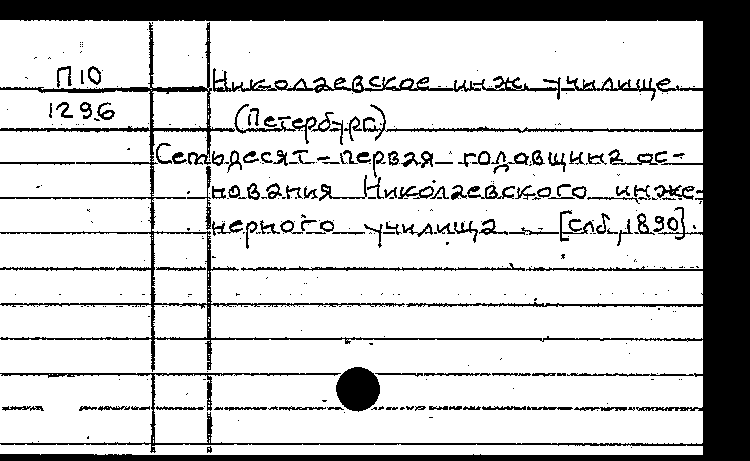 П10
1296
Николаевское инж. училище
(Петербург.)
Семьдесят-первая годовщина ос-
нования Николаевского инже-
нерного училища. [Спб., 1890].